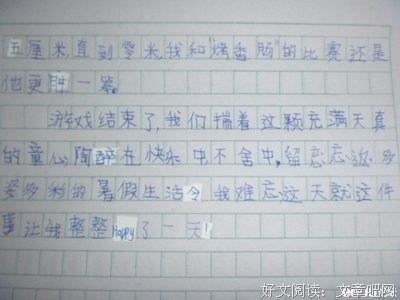 五厘米直到零米,我和"烤香肠"的比赛还是
他更胜一筹。
游戏结束了,我们揣着这颗充满天真
的童心,陶醉在快乐中不舍中,留恋忘返。多
姿多彩的暑假生活令我难忘这天就这件
事让我整整Happy了一天!
好文阅读:文章吧网